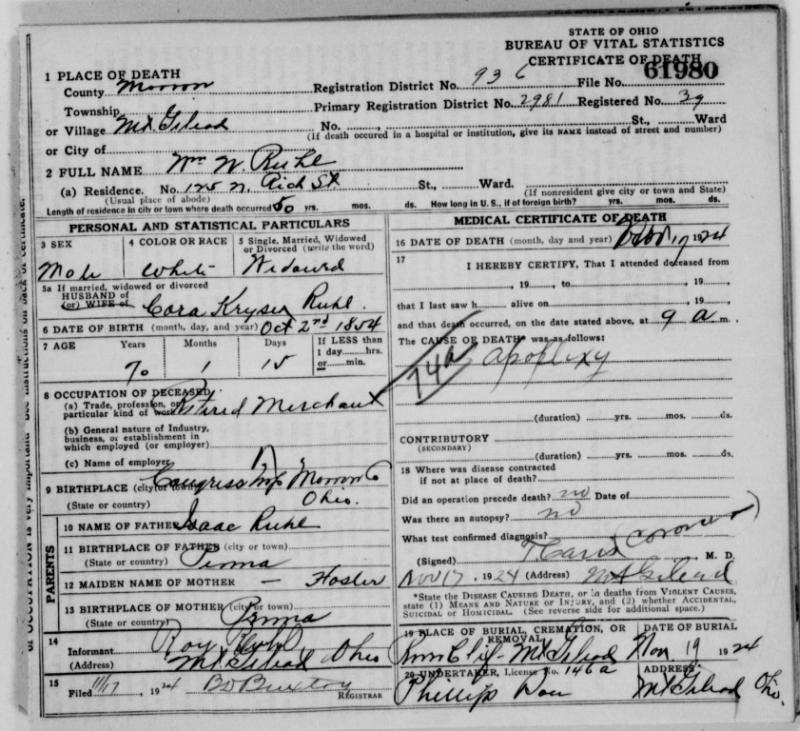 STATE OF OHIO
BUREAU OF VITAL STATISTICS
CERTIFICATE OF DEATH
1 PLACE OF DEATH
County Morrow Registration District No. 936 File No. 61980
Township Primary Registration District No. 2981 Registered No. 39
or Village Mt Gilead No. , St., Ward
(If death occured in a hospital or institution, give its NAME instead of street and number)
or City of
2 FULL NAME Wm W. Ruhl
(a) Residence. No. 125 N. Rich St St., Ward.
(Usual place of abode) (If nonresident give city or town and State)
Length of residence in city or town where death occurred 50 yrs. mos. ds. How long in U. S., if of foreign birth? yrs. mos. ds.
PERSONAL AND STATISTICAL PARTICULARS
3 SEX
Male
4 COLOR OR RACE
White
5 Single, Married, Widowed
or Divorced (write the word)
Widowed
5a If married, widowed or divorced
HUSBAND of
(or) WIFE of Cora Kryser Ruhl.
6 DATE OF BIRTH (month, day, and year) Oct 2nd 1854
7 AGE Years Months Days If LESS than
1 day......hrs.
or......min.
70 1 15
8 OCCUPATION OF DECEASED
(a) Trade, profession, or
particular kind of work Retired Merchant
(b) General nature of Industry,
business, or establishment in
which employed (or employer)
(c) Name of employer
9 BIRTHPLACE (city or town) Congress Twp Morrow Co
(State or country) Ohio.
PARENTS
10 NAME OF FATHER Isaac Ruhl
11 BIRTHPLACE OF FATHER (city or town)
(State or country) Penna
12 MAIDEN NAME OF MOTHER — Hosler
13 BIRTHPLACE OF MOTHER (city or town)
(State or country) Penna
14
Informant Roy Ruhl
(Address) Mt Gilead, Ohio
15
Filed 11/17, 1924 Buxton
REGISTRAR
MEDICAL CERTIFICATE OF DEATH
16 DATE OF DEATH (month, day and year) Nov 17 1924
17
I HEREBY CERTIFY, That I attended deceased from
, 19 , to , 19 ,
that I last saw h alive on , 19 ,
and that death occurred, on the date stated above, at 9 a m.
The CAUSE OF DEATH* was as follows:
74a Apoplexy
(duration) yrs. mos. ds.
CONTRIBUTORY
(SECONDARY)
(duration) yrs. mos. ds.
18 Where was disease contracted
if not at place of death?
Did an operation precede death? no Date of
Was there an autopsy? no
What test confirmed diagnosis?
(Signed) Coroner M. D.
Nov 17, 1924 (Address) Mt Gilead
*State the DISEASE CAUSING DEATH, or in deaths from VIOLENT CAUSES,
state (1) MEANS AND NATURE OF INJURY, and (2) whether ACCIDENTAL,
SUICIDAL or HOMICIDAL. (See reverse side for additional space.)
19 PLACE OF BURIAL, CREMATION, OR
REMOVAL
Mt Gilead
DATE OF BURIAL
Nov 19 1924
20 UNDERTAKER, License No. 146a
Phillips
ADDRESS
Mt Gilead Ohio.